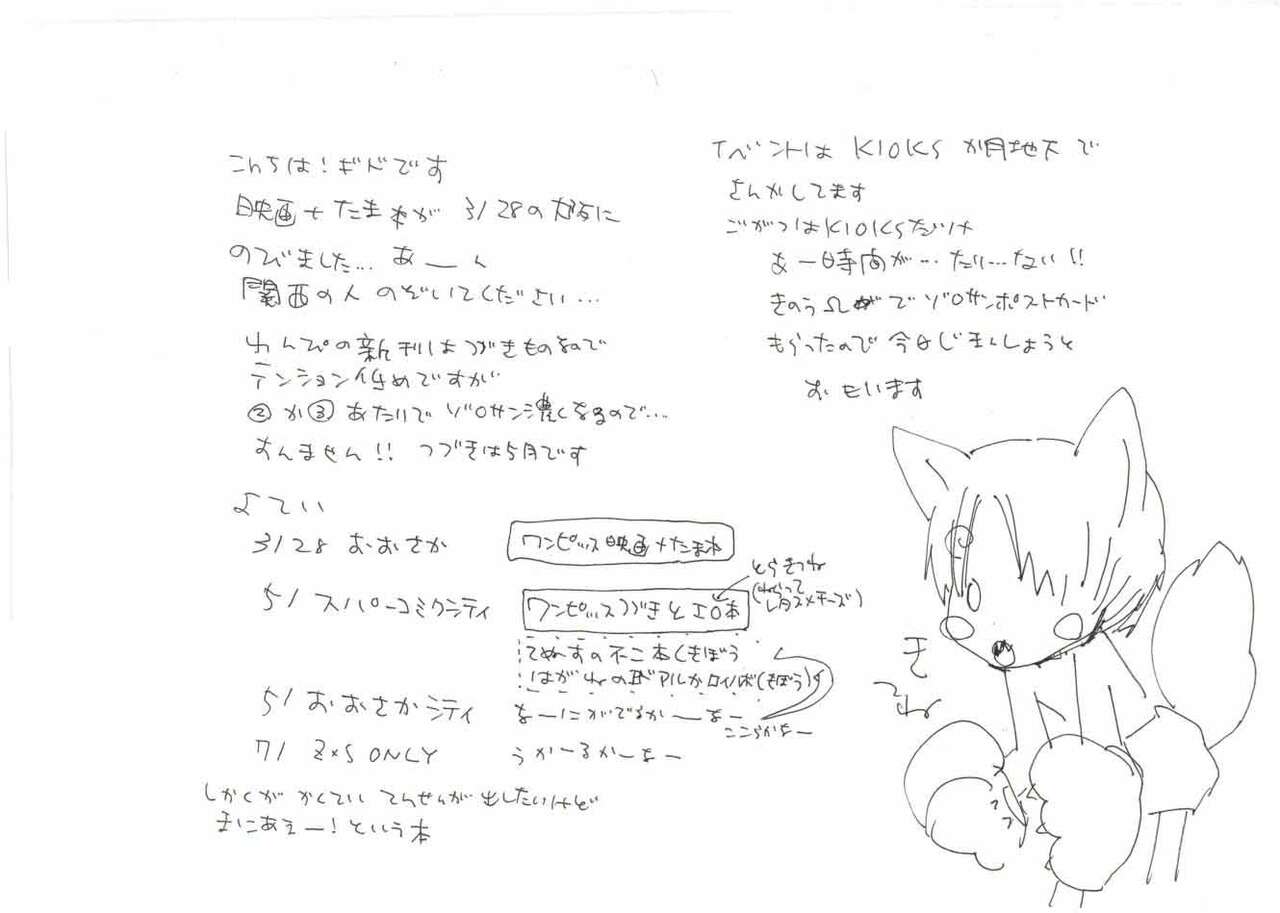 こんちは！ギドです
映画+たまねが 3/28の大阪に
のびました… あーん
関西の人 のぞいてください…
わんぴの新刊は つづきものなので
テンション低めですが
②か③あたりで ゾロサン濃くなるので…
すんません!! つづきは5月です
よてい
3/28 おおさか ワンピッス映画+たまね
5/ スパーコミクシティ ワンピッスつづきとエロ本
とらきつね
(ねらって
レタスメチーズ)
てぬすの不二本(きぼう
はがねの アルかロイ本(きぼう)
5/ おおさかシティ なーにがでるかーなー
ここらかなー
7/ Z×S ONLY うかーるかーなー
しかくが かくてい てんせんが 出したいけど
まにあえー！という本
イベントは KIOKS が月地下で
さんかしてます
ごがつはKIOKSだけ
あー時間が…たり…ない!!
きのう で ゾロサンポストカード
もらったので 今日じまんしようと
おもいます
きつね